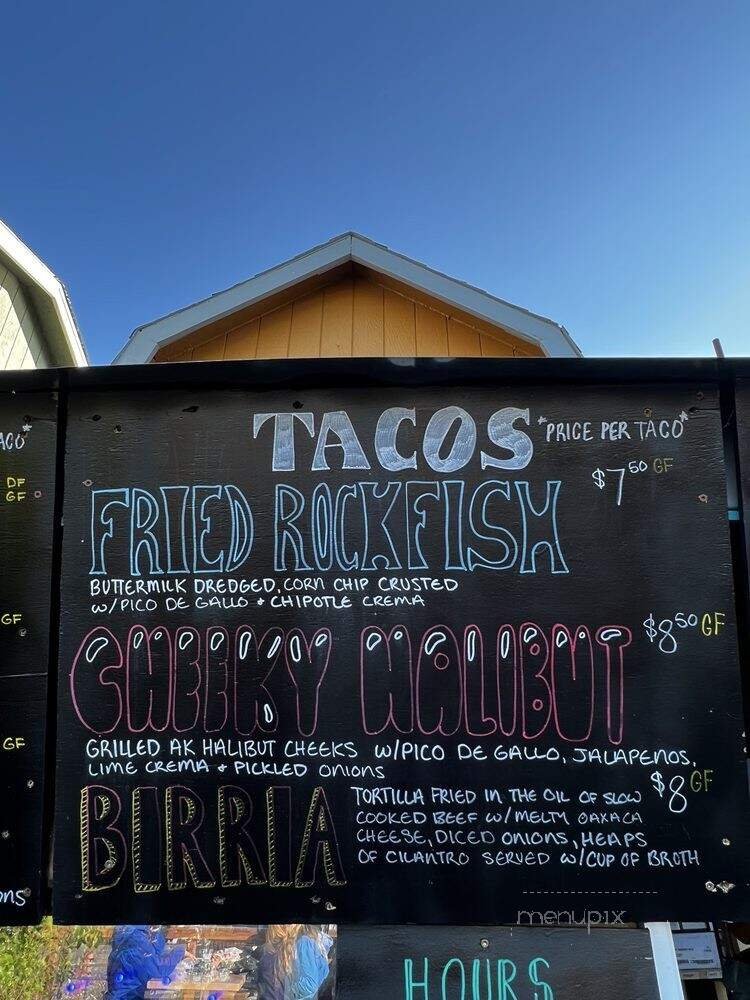 TACOS *PRICE PER TACO*
FRIED ROCKFISH $7.50 GF
BUTTERMILK DREDGED, CORN CHIP CRUSTED
W/PICO DE GALLO + CHIPOTLE CREMA
CHEEKY HALIBUT $8.50 GF
GRILLED AK HALIBUT CHEEKS W/PICO DE GALLO, JALAPENOS,
LIME CREMA + PICKLED ONIONS
BIRRIA $8 GF
TORTILLA FRIED IN THE OIL OF SLOW
COOKED BEEF W/ MELTY OAXACA
CHEESE, DICED ONIONS, HEAPS
OF CILANTRO SERVED W/CUP OF BROTH
menupix
HOURS
DF
GF
GF
GF